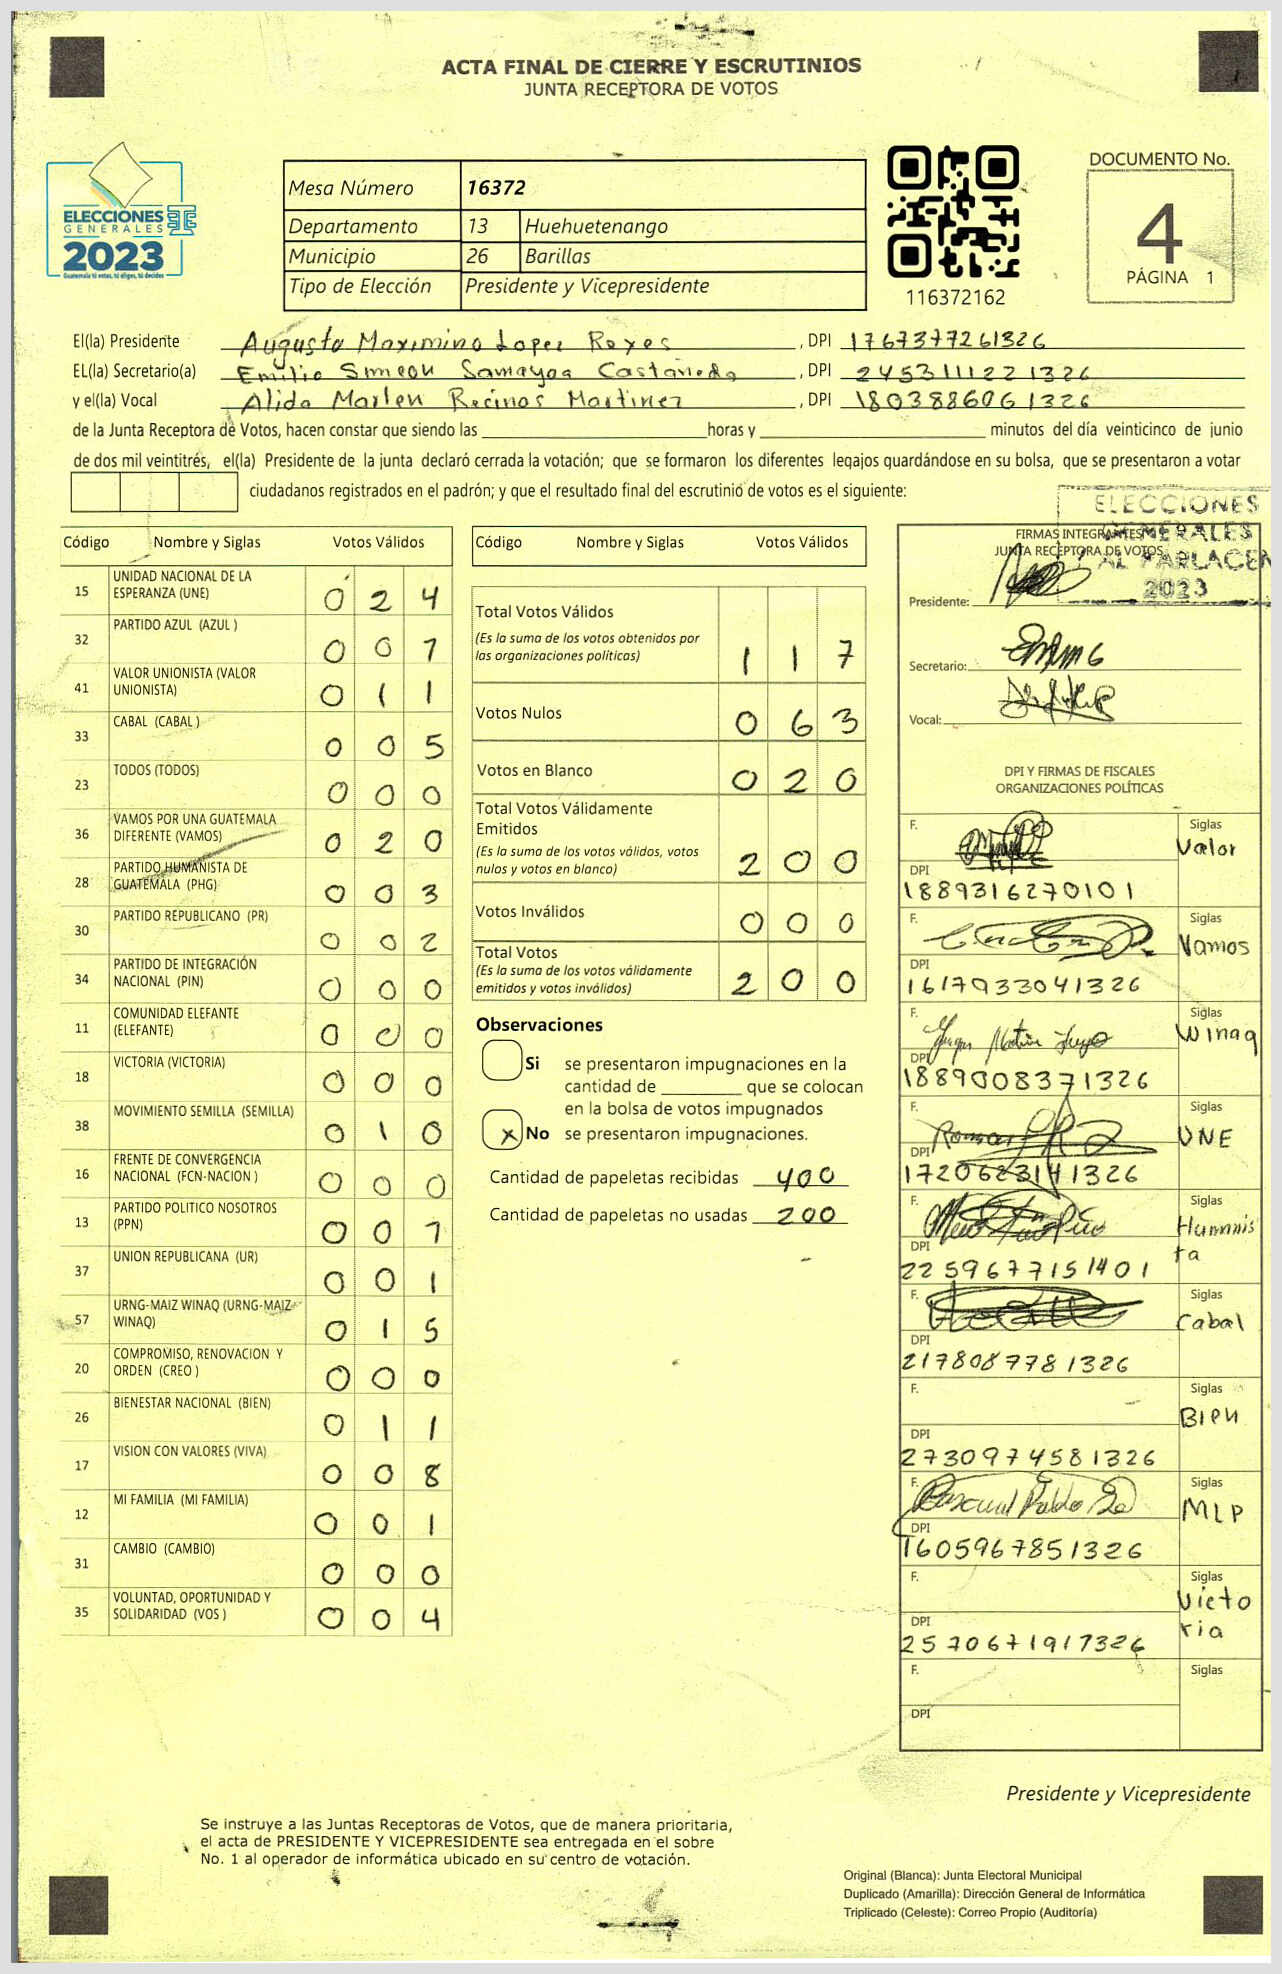 ACTA FINAL DE CIERRE Y ESCRUTINIOS
JUNTA RECEPTORA DE VOTOS
ELECCIONES
GENERALES
2023
Guatemala tú votas, tú eliges, tú decides
Mesa Número 16372
Departamento 13 Huehuetenango
Municipio 26 Barillas
Tipo de Elección Presidente y Vicepresidente
116372162
DOCUMENTO No.
4
PÁGINA 1
El(la) Presidente Augusto Maximino Lopez Reyes, DPI 1767377261326
EL(la) Secretario(a) Emilio Simeon Samayoa Castañeda, DPI 2453111221326
y el(la) Vocal Alida Marlen Recinos Martinez, DPI 1803886061326
de la Junta Receptora de Votos, hacen constar que siendo las horas y minutos del día veinticinco de junio
de dos mil veintitrés, el(la) Presidente de la junta declaró cerrada la votación; que se formaron los diferentes legajos guardándose en su bolsa, que se presentaron a votar
ciudadanos registrados en el padrón; y que el resultado final del escrutinio de votos es el siguiente:
Código Nombre y Siglas Votos Válidos
15 UNIDAD NACIONAL DE LA ESPERANZA (UNE) 0 2 4
32 PARTIDO AZUL (AZUL ) 0 0 7
41 VALOR UNIONISTA (VALOR UNIONISTA) 0 1 1
33 CABAL (CABAL ) 0 0 5
23 TODOS (TODOS) 0 0 0
36 VAMOS POR UNA GUATEMALA DIFERENTE (VAMOS) 0 2 0
28 PARTIDO HUMANISTA DE GUATEMALA (PHG) 0 0 3
30 PARTIDO REPUBLICANO (PR) 0 0 2
34 PARTIDO DE INTEGRACIÓN NACIONAL (PIN) 0 0 0
11 COMUNIDAD ELEFANTE (ELEFANTE) 0 0 0
18 VICTORIA (VICTORIA) 0 0 0
38 MOVIMIENTO SEMILLA (SEMILLA) 0 1 0
16 FRENTE DE CONVERGENCIA NACIONAL (FCN-NACION ) 0 0 0
13 PARTIDO POLITICO NOSOTROS (PPN) 0 0 7
37 UNION REPUBLICANA (UR) 0 0 1
57 URNG-MAIZ WINAQ (URNG-MAIZ-WINAQ) 0 1 5
20 COMPROMISO, RENOVACION Y ORDEN (CREO ) 0 0 0
26 BIENESTAR NACIONAL (BIEN) 0 1 1
17 VISION CON VALORES (VIVA) 0 0 8
12 MI FAMILIA (MI FAMILIA) 0 0 1
31 CAMBIO (CAMBIO) 0 0 0
35 VOLUNTAD, OPORTUNIDAD Y SOLIDARIDAD (VOS ) 0 0 4
Código Nombre y Siglas Votos Válidos
Total Votos Válidos
(Es la suma de los votos obtenidos por
las organizaciones políticas) 1 1 7
Votos Nulos 0 6 3
Votos en Blanco 0 2 0
Total Votos Válidamente
Emitidos
(Es la suma de los votos válidos, votos
nulos y votos en blanco) 2 0 0
Votos Inválidos 0 0 0
Total Votos
(Es la suma de los votos válidamente
emitidos y votos inválidos) 2 0 0
Observaciones
Si se presentaron impugnaciones en la
cantidad de que se colocan
en la bolsa de votos impugnados
x No se presentaron impugnaciones.
Cantidad de papeletas recibidas 400
Cantidad de papeletas no usadas 200
ELECCIONES
GENERALES
AL PARLACEN
2023
FIRMAS INTEGRANTES
JUNTA RECEPTORA DE VOTOS
Presidente:
Secretario:
Vocal:
DPI Y FIRMAS DE FISCALES
ORGANIZACIONES POLÍTICAS
F. Siglas Valor
DPI 1889316270101
F. Siglas Vamos
DPI 1617933041326
F. Siglas Winaq
DPI 1889008371326
F. Siglas UNE
DPI 1720623141326
F. Siglas Humanis
ta
DPI 2259677151401
F. Siglas Cabal
DPI 2178087781326
F. Siglas Bien
DPI 2730974581326
F. Siglas MLP
DPI 1605967851326
F. Siglas Victo
ria
DPI 2570671917326
F. Siglas
DPI
Presidente y Vicepresidente
Se instruye a las Juntas Receptoras de Votos, que de manera prioritaria,
el acta de PRESIDENTE Y VICEPRESIDENTE sea entregada en el sobre
No. 1 al operador de informática ubicado en su centro de votación.
Original (Blanca): Junta Electoral Municipal
Duplicado (Amarilla): Dirección General de Informática
Triplicado (Celeste): Correo Propio (Auditoría)